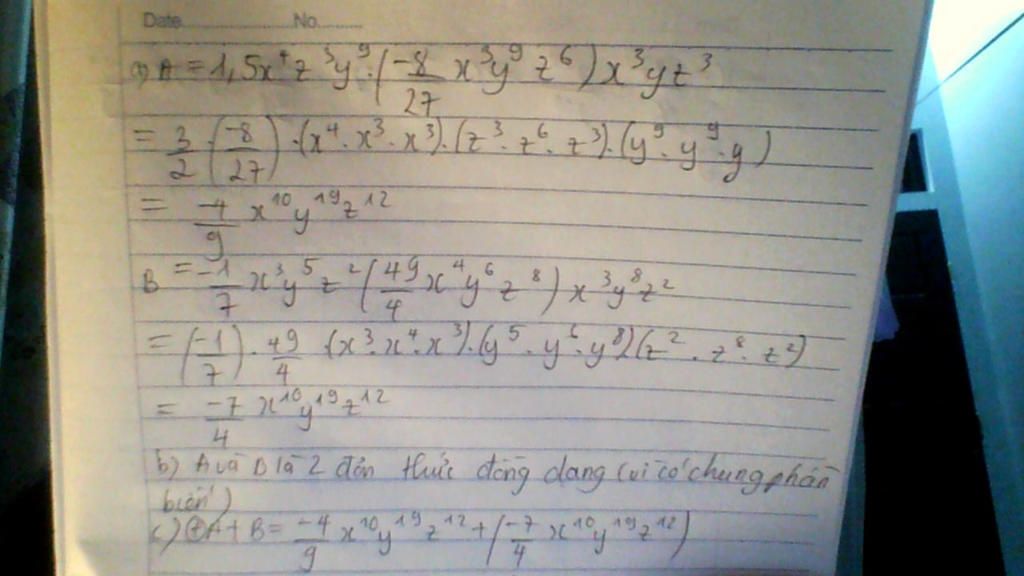 Date............No.........
a) A = 1,5x⁴z³y⁹·(-8/27 x³y⁹z⁶)x³yz³
= 3/2·(-8/27)·(x⁴·x³·x³)·(z³·z⁶·z³)·(y⁹·y⁹·y)
= -4/9 x¹⁰y¹⁹z¹²
B = -1/7 x³y⁵z²(49/4 x⁴y⁶z⁸)x³y⁸z²
= (-1/7)·49/4 (x³·x⁴·x³)·(y⁵·y⁶·y⁸)(z²·z⁸·z²)
= -7/4 x¹⁰y¹⁹z¹²
b) A và B là 2 đơn thức đồng dạng (vì có chung phần
biến)
c) ⊕A + B = -4/9 x¹⁰y¹⁹z¹² + (-7/4 x¹⁰y¹⁹z¹²)